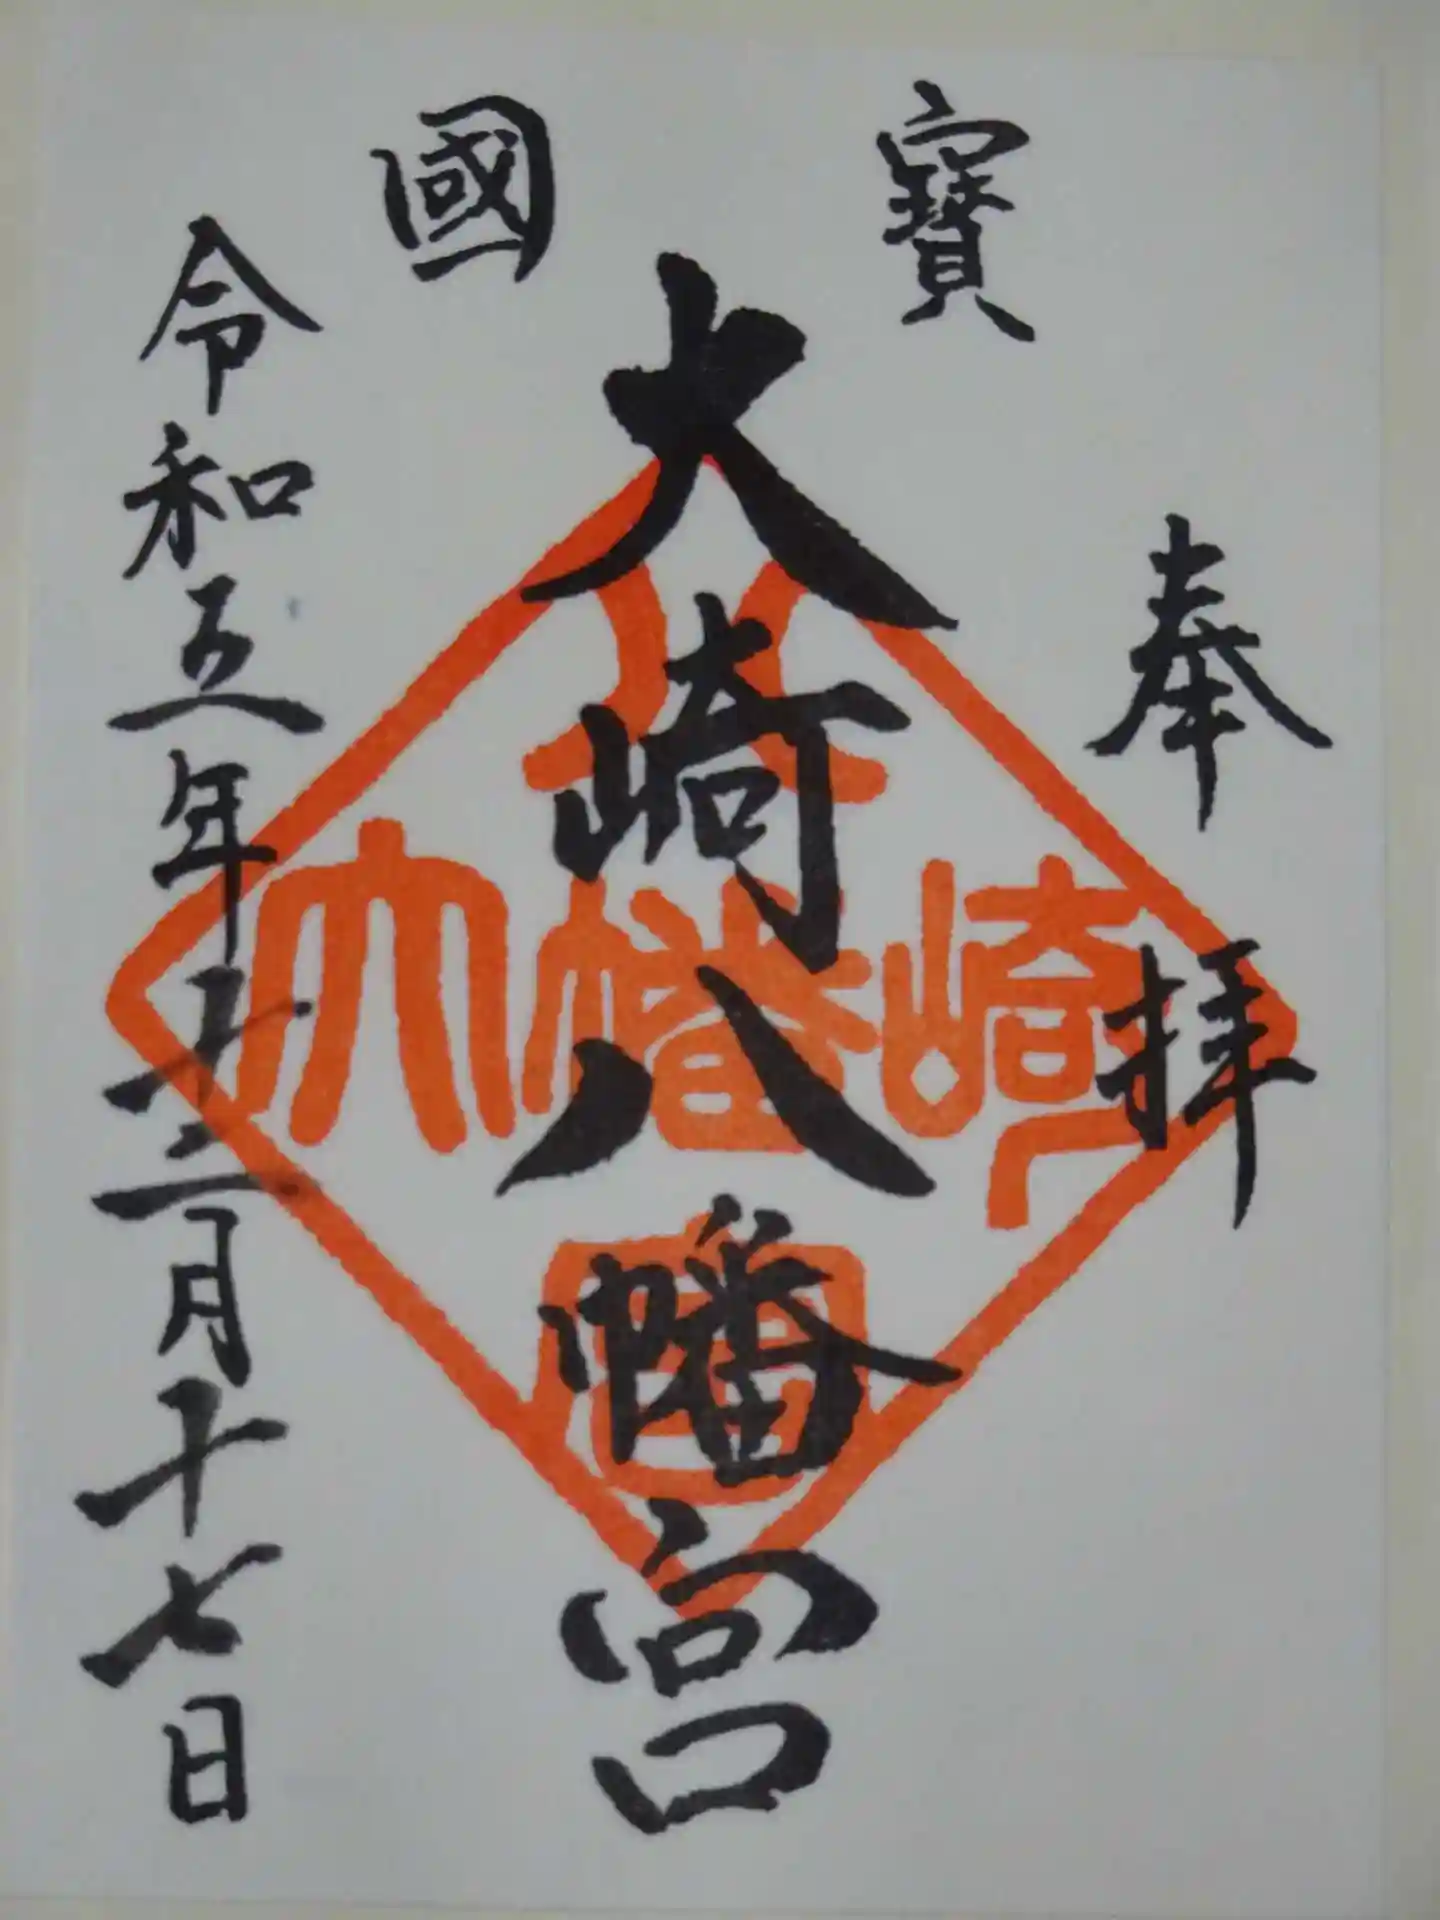 奉拝
寶
國
大崎八幡宮
令和五年十二月十七日
大崎八幡宮